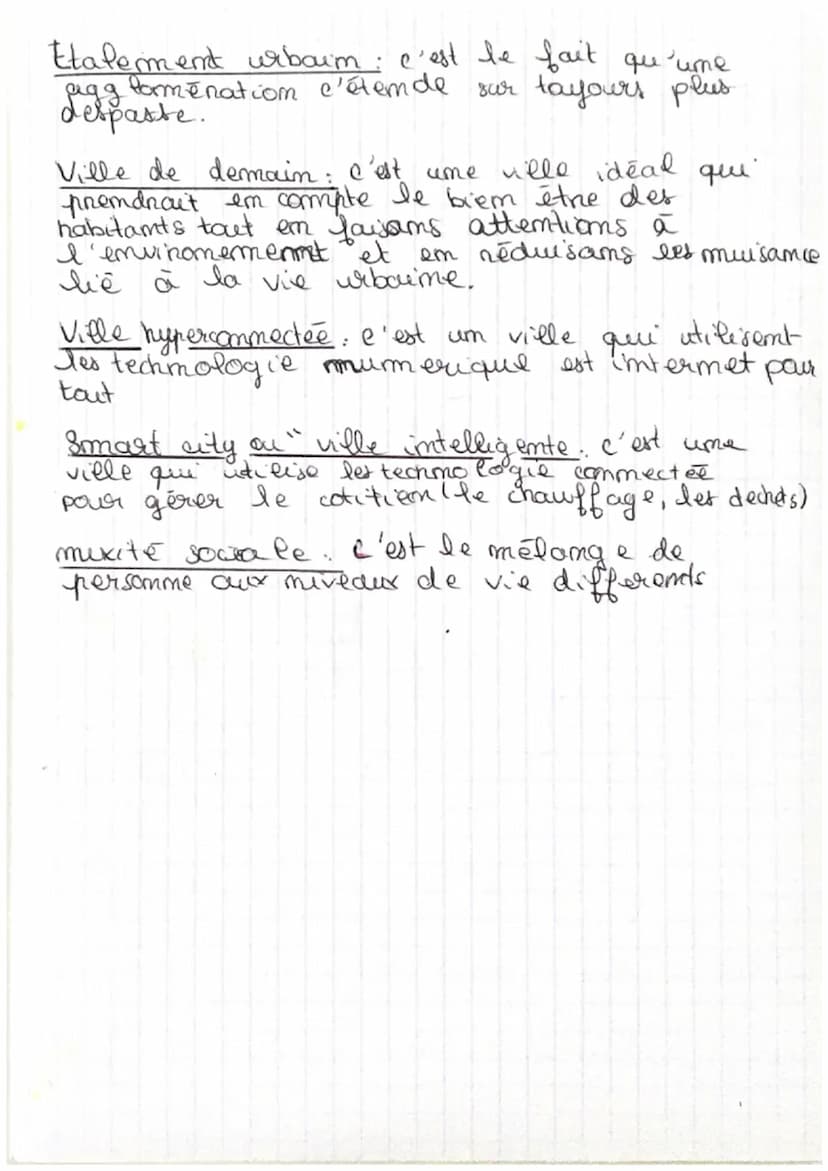 Etalement urbain : c'est le fait qu'une
agglomération c'étende sur toujours plus
despaste.
Ville de demain : c'est une ville idéal qui
prendrait en compte le bien être des
habitants tout en faisans attentions à
l'environnement et en réduisans les nuisance
lié à la vie urbaine.
Ville hyperconnectée : c'est un ville qui utilisent
les technologie numerique est internet pour
tout
Smart city ou " ville intelligente : c'est une
ville qui utilise les technologie connectée
pour gérer le cotitien (le chauffage, les dechets)
mixité sociale : c'est le mélange de
personne aux niveaux de vie differents